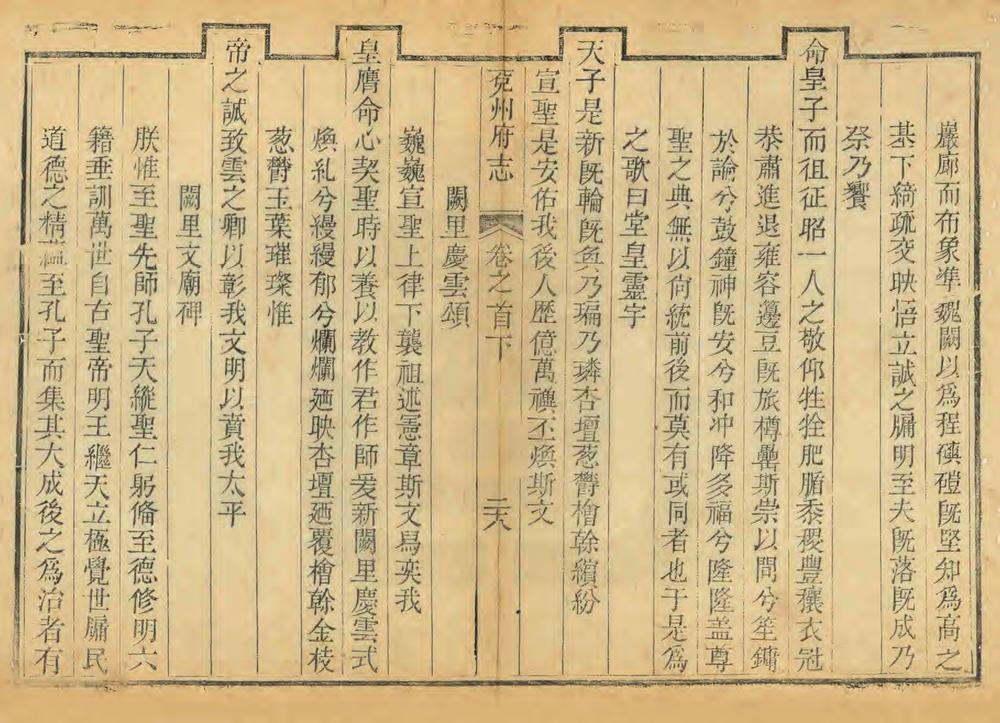 巖廊而布象準魏闕以爲程磺磑既堅知爲高之
基下綺疏交映悟立誠之牖明至夫既落既成乃
祭乃饗
命皇子而徂征昭一人之敬仰牲牷肥腯黍稷豐穰衣冠
恭肅進退雍容籩豆既旅樽罍斯崇以問兮笙鏞
於論兮鼓鐘神既安兮和冲降多福兮隆隆盖尊
聖之典無以尚統前後而莫有或同者也于是爲
之歌曰堂皇靈宇
天子是新既輪既奐乃瑞乃璘杏壇葱欝檜榦繽紛
宣聖是安佑我後人歷億萬禩丕煥斯文
兖州府志 卷之首下 二六
闕里慶雲頌
巍巍宣聖上律下襲祖述憲章斯文爲奕我
皇膺命心契聖時以養以教作君作師爰新闕里慶雲式
煥糺兮縵縵郁兮爛爛廼映杏壇廼覆檜榦金枝
葱欝玉葉璀璨惟
帝之誠致雲之卿以彰我文明以賁我太平
闕里文廟碑
朕惟至聖先師孔子天縱聖仁躬備至德修明六
籍垂訓萬世自古聖帝明王繼天立極覺世牖民
道德之精蘊至孔子而集其大成後之爲治者有